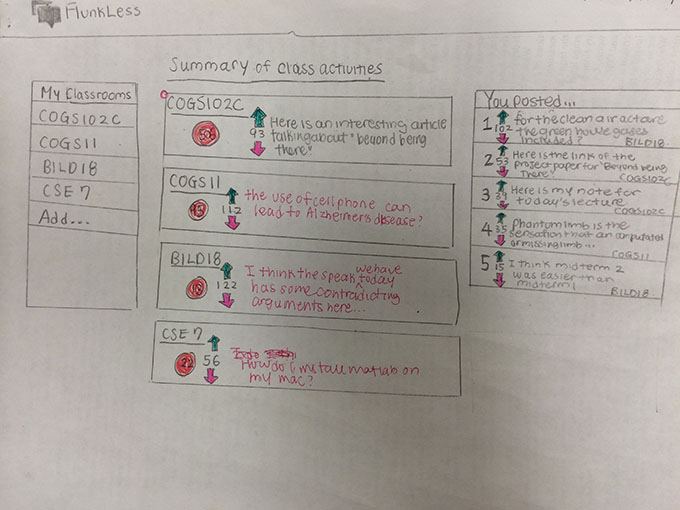 FlunkLess
Summary of class activities
My Classrooms
COGS102C
COGS11
BILD18
CSE 7
Add...
COGS102C
93
Here is an interesting article
talking about "beyond being
there"
COGS11
112
the use of cell phone can
lead to Alzheimer's disease?
BILD18
122
I think the speak we have today
has some contradicting
arguments here...
CSE 7
22
56
How do I install matlab on
my mac?
You posted...
1
102
for the clean air act are
the green house gases
included?
BILD18
2
53
Here is the link of the
project paper for "Beyond being
There"
COGS102C
3
39
Here is my note for
today's lecture
COGS102C
4
35
Phantom limb is the
sensation that an amputated
or missing limb...
COGS11
5
15
I think midterm 2
was easier than
midterm 1
BILD18